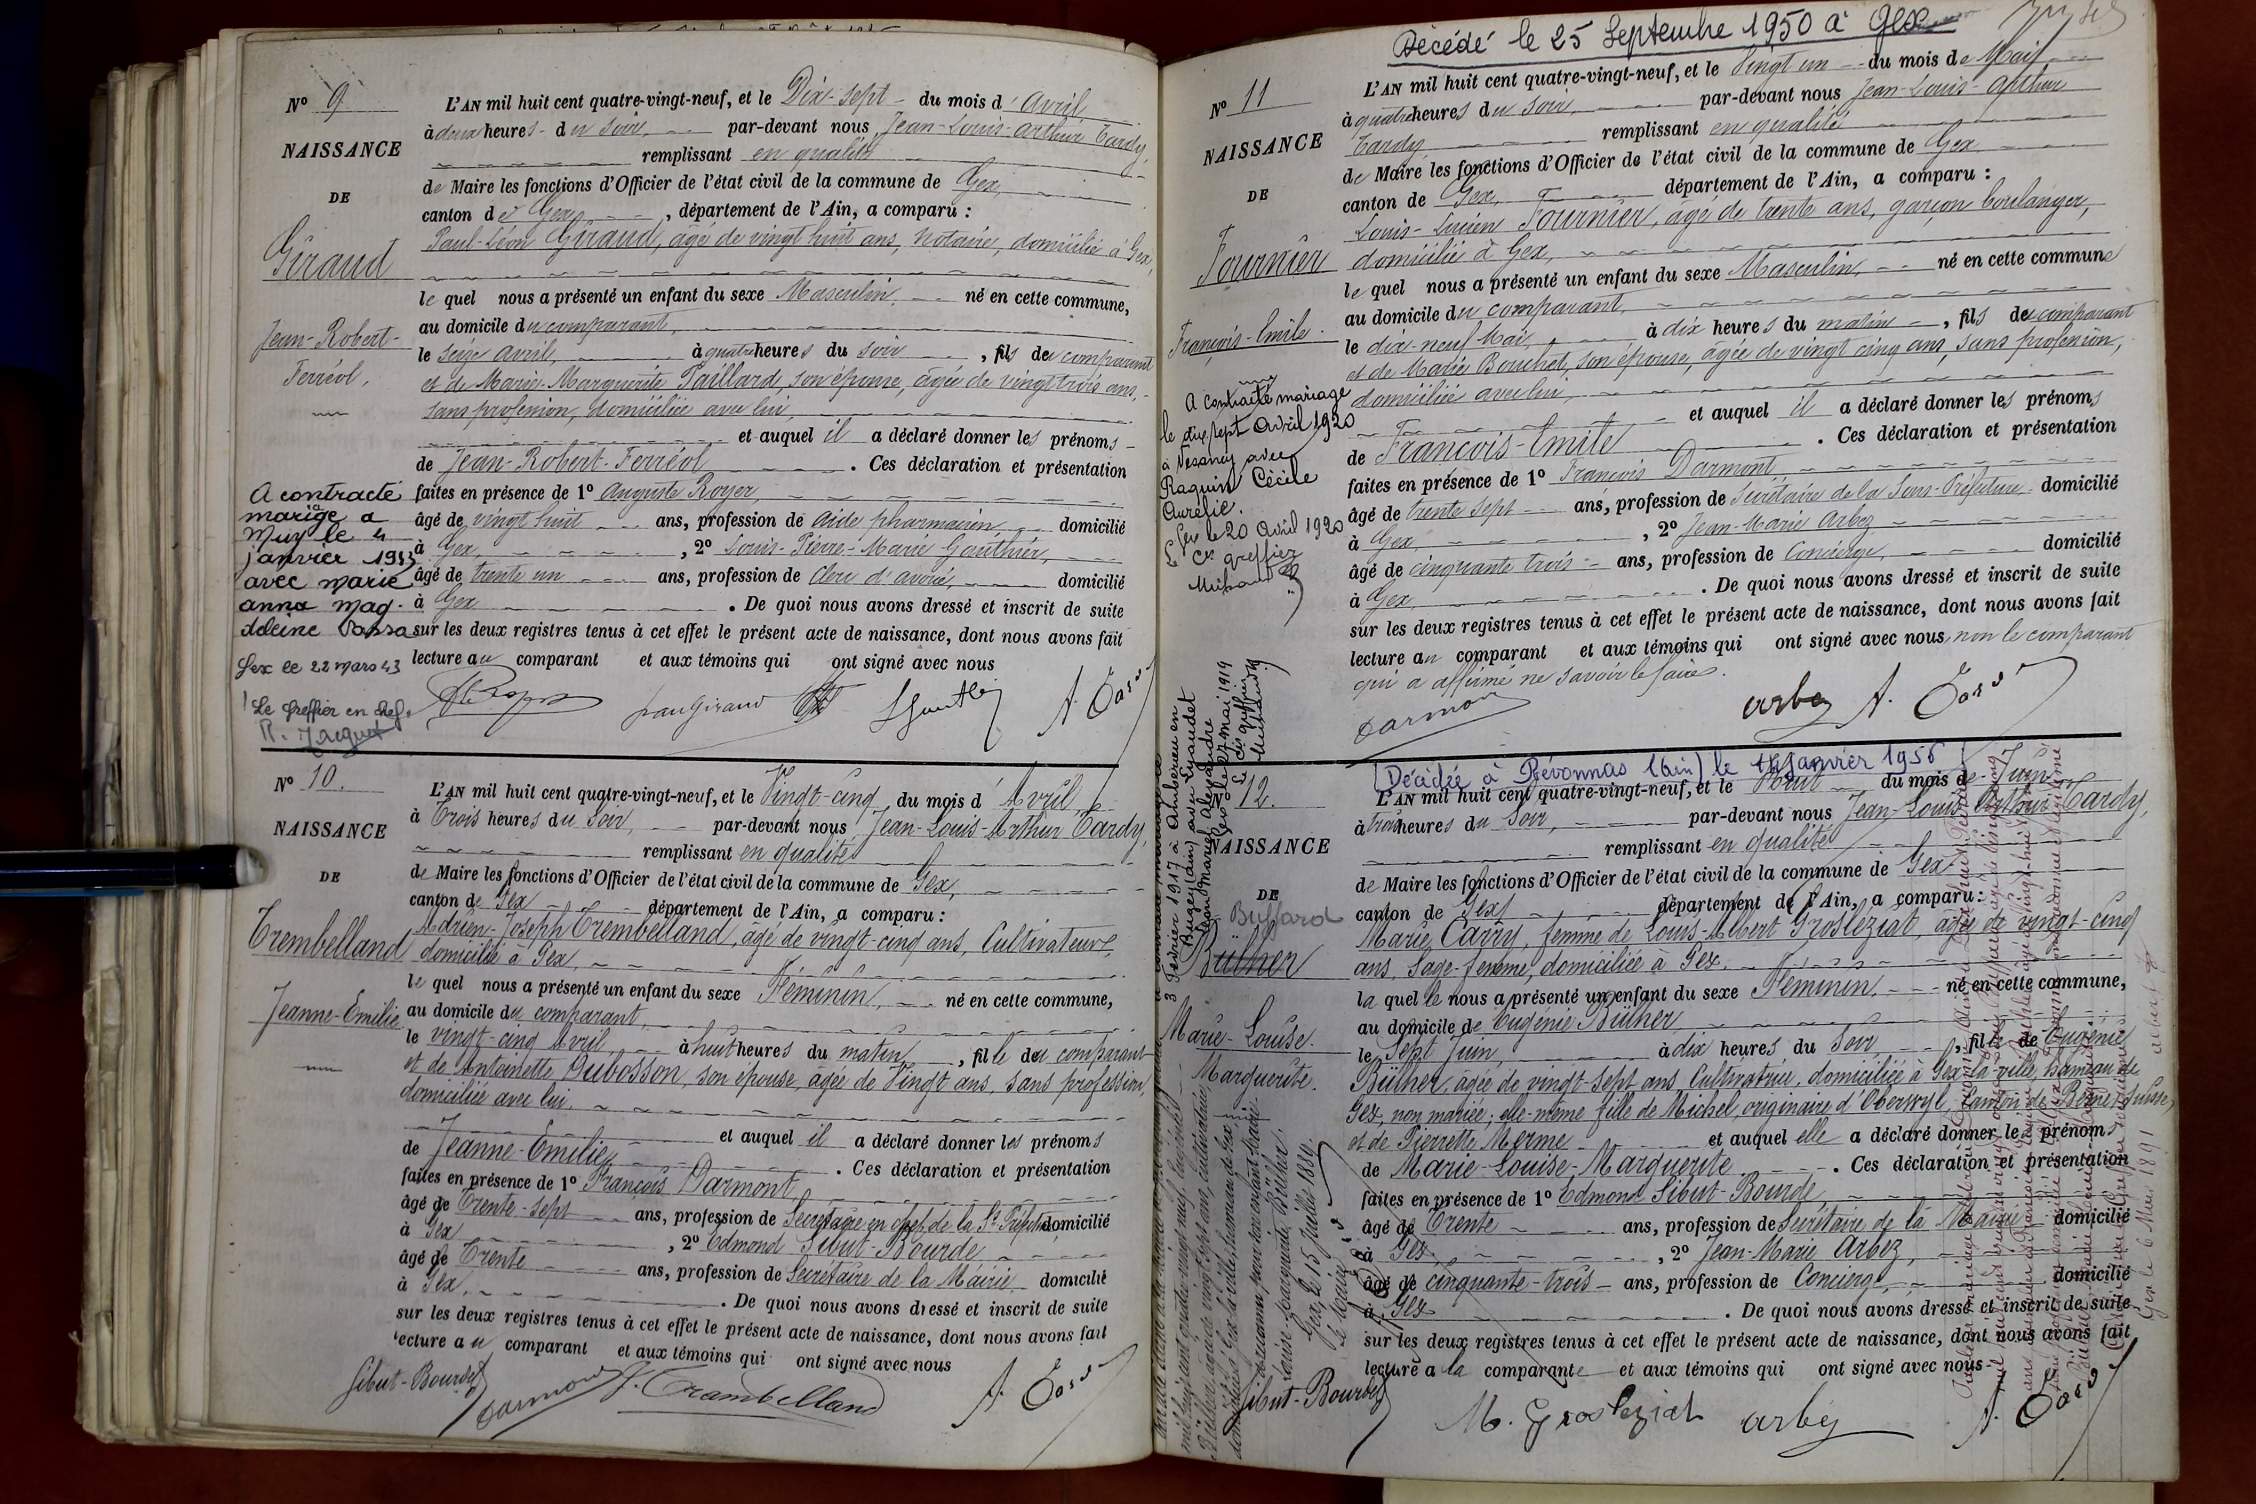 N° 9
NAISSANCE
DE
Giraud
Jean-Robert-
Ferréol.
A contracté
mariage a
Muy le 4
janvier 1943
avec marie
anna mag-
deleine
Gex le 22 mars 43
Le Greffier en chef.
R. Jacquet
L'AN mil huit cent quatre-vingt-neuf, et le Dix-sept du mois d'Avril
à deux heures du soir, par-devant nous Jean-Louis-Arthur Tardy,
remplissant en qualité
de Maire les fonctions d'Officier de l'état civil de la commune de Gex,
canton de Gex, département de l'Ain, a comparu :
Paul-Léon Giraud, âgé de vingt huit ans, Notaire, domicilié à Gex,
le quel nous a présenté un enfant du sexe Masculin, né en cette commune,
au domicile du comparant,
le seize avril, à quatre heures du soir, fils du comparant
et de Marie-Marguerite Paillard, son épouse, âgée de vingt trois ans,
sans profession, domiciliée avec lui,
et auquel il a déclaré donner les prénoms
de Jean-Robert-Ferréol. Ces déclaration et présentation
faites en présence de 1° Auguste Royer,
âgé de vingt huit ans, profession de aide pharmacien domicilié
à Gex, 2° Louis-Pierre-Marie Gauthier,
âgé de trente un ans, profession de clerc d'avoué, domicilié
à Gex. De quoi nous avons dressé et inscrit de suite
sur les deux registres tenus à cet effet le présent acte de naissance, dont nous avons fait
lecture au comparant et aux témoins qui ont signé avec nous
Paul Giraud
N° 10.
NAISSANCE
DE
Trembelland
Jeanne-Emilie
L'AN mil huit cent quatre-vingt-neuf, et le Vingt-cinq du mois d'Avril,
à Trois heures du soir, par-devant nous Jean-Louis-Arthur Tardy,
remplissant en qualité
de Maire les fonctions d'Officier de l'état civil de la commune de Gex,
canton de Gex département de l'Ain, a comparu :
Adrien-Joseph Trembelland, âgé de vingt-cinq ans, Cultivateur,
domicilié à Gex,
le quel nous a présenté un enfant du sexe Féminin, né en cette commune,
au domicile du comparant,
le vingt-cinq Avril, à huit heures du matin, fille du comparant
et de Antoinette Dubosson, son épouse, âgée de Vingt ans, sans profession,
domiciliée avec lui,
et auquel il a déclaré donner les prénoms
de Jeanne-Emilie. Ces déclaration et présentation
faites en présence de 1° François Darmont,
âgé de Trente-sept ans, profession de Secrétaire en chef de la Ss Préfecture domicilié
à Gex, 2° Edmond Sibut-Bourde
âgé de Trente ans, profession de Secrétaire de la Mairie domicilié
à Gex. De quoi nous avons dressé et inscrit de suite
sur les deux registres tenus à cet effet le présent acte de naissance, dont nous avons fait
lecture au comparant et aux témoins qui ont signé avec nous
Sibut-Bourde Darmont J. Trambelland
Décédé le 25 Septembre 1950 à Gex
N° 11
NAISSANCE
DE
Fournier
François-Emile.
A contracté mariage
le dix sept Avril 1920
à Vesancy avec
Raquin Cécile
Aurélie.
Gex le 20 Avril 1920
greffier
L'AN mil huit cent quatre-vingt-neuf, et le Vingt un du mois de Mai
à quatre heures du soir, par-devant nous Jean-Louis-Arthur
Tardy remplissant en qualité
de Maire les fonctions d'Officier de l'état civil de la commune de Gex
canton de Gex, département de l'Ain, a comparu :
Louis-Lucien Fournier, âgé de trente ans, garçon boulanger,
domicilié à Gex,
le quel nous a présenté un enfant du sexe Masculin, né en cette commune
au domicile du comparant,
le dix-neuf Mai, à dix heures du matin, fils du comparant
et de Marie Bouchet, son épouse, âgée de vingt cinq ans, sans profession,
domiciliée avec lui,
et auquel il a déclaré donner les prénoms
de François-Emile. Ces déclaration et présentation
faites en présence de 1° François Darmont
âgé de trente sept ans, profession de Secrétaire de la Sous-Préfecture domicilié
à Gex, 2° Jean-Marie Arbez
âgé de cinquante trois ans, profession de Concierge, domicilié
à Gex. De quoi nous avons dressé et inscrit de suite
sur les deux registres tenus à cet effet le présent acte de naissance, dont nous avons fait
lecture au comparant et aux témoins qui ont signé avec nous, non le comparant
qui a affirmé ne savoir le faire.
Darmont Arbez
Décédée à Révonnas (Ain) le janvier 1956
12.
NAISSANCE
DE
Buffard
Bülher
Marie-Louise.
Marguerite.
L'AN mil huit cent quatre-vingt-neuf, et le Huit du mois de Juin
à trois heures du Soir, par-devant nous Jean-Louis-Arthur Tardy,
remplissant en qualité
de Maire les fonctions d'Officier de l'état civil de la commune de Gex
canton de Gex, département de l'Ain, a comparu :
Marie Carry, femme de Louis-Albert Grosleziat, âgée de vingt-cinq
ans, Sage-femme, domiciliée à Gex,
la quelle nous a présenté un enfant du sexe Féminin né en cette commune,
au domicile de Eugénie Bülher
le Sept Juin, à dix heures du Soir, fille de Eugénie
Bülher, âgée de vingt-sept ans Cultivatrice, domiciliée à Gex-la-ville, hameau de
Gex, non mariée; elle-même fille de Michel, originaire d'Oberwyl, canton de Berne, Suisse,
et de Pierrette Merme et auquel elle a déclaré donner les prénoms
de Marie-Louise-Marguerite. Ces déclaration et présentation
faites en présence de 1° Edmond Sibut-Bourde
âgé de Trente ans, profession de Secrétaire de la Mairie domicilié
à Gex, 2° Jean-Marie Arbez,
âgé de cinquante-trois ans, profession de Concierge domicilié
à Gex. De quoi nous avons dressé et inscrit de suite
sur les deux registres tenus à cet effet le présent acte de naissance, dont nous avons fait
lecture a la comparante et aux témoins qui ont signé avec nous
Sibut-Bourde M. Grosleziat Arbez
Gex, le 15 Juillet 1889.
Le Maire
Gex le 6 Mars 1891